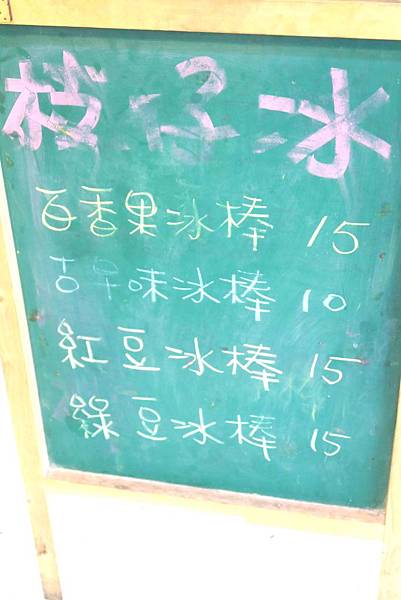 枝仔冰
百香果冰棒 15
古早味冰棒 10
紅豆冰棒 15
綠豆冰棒 15